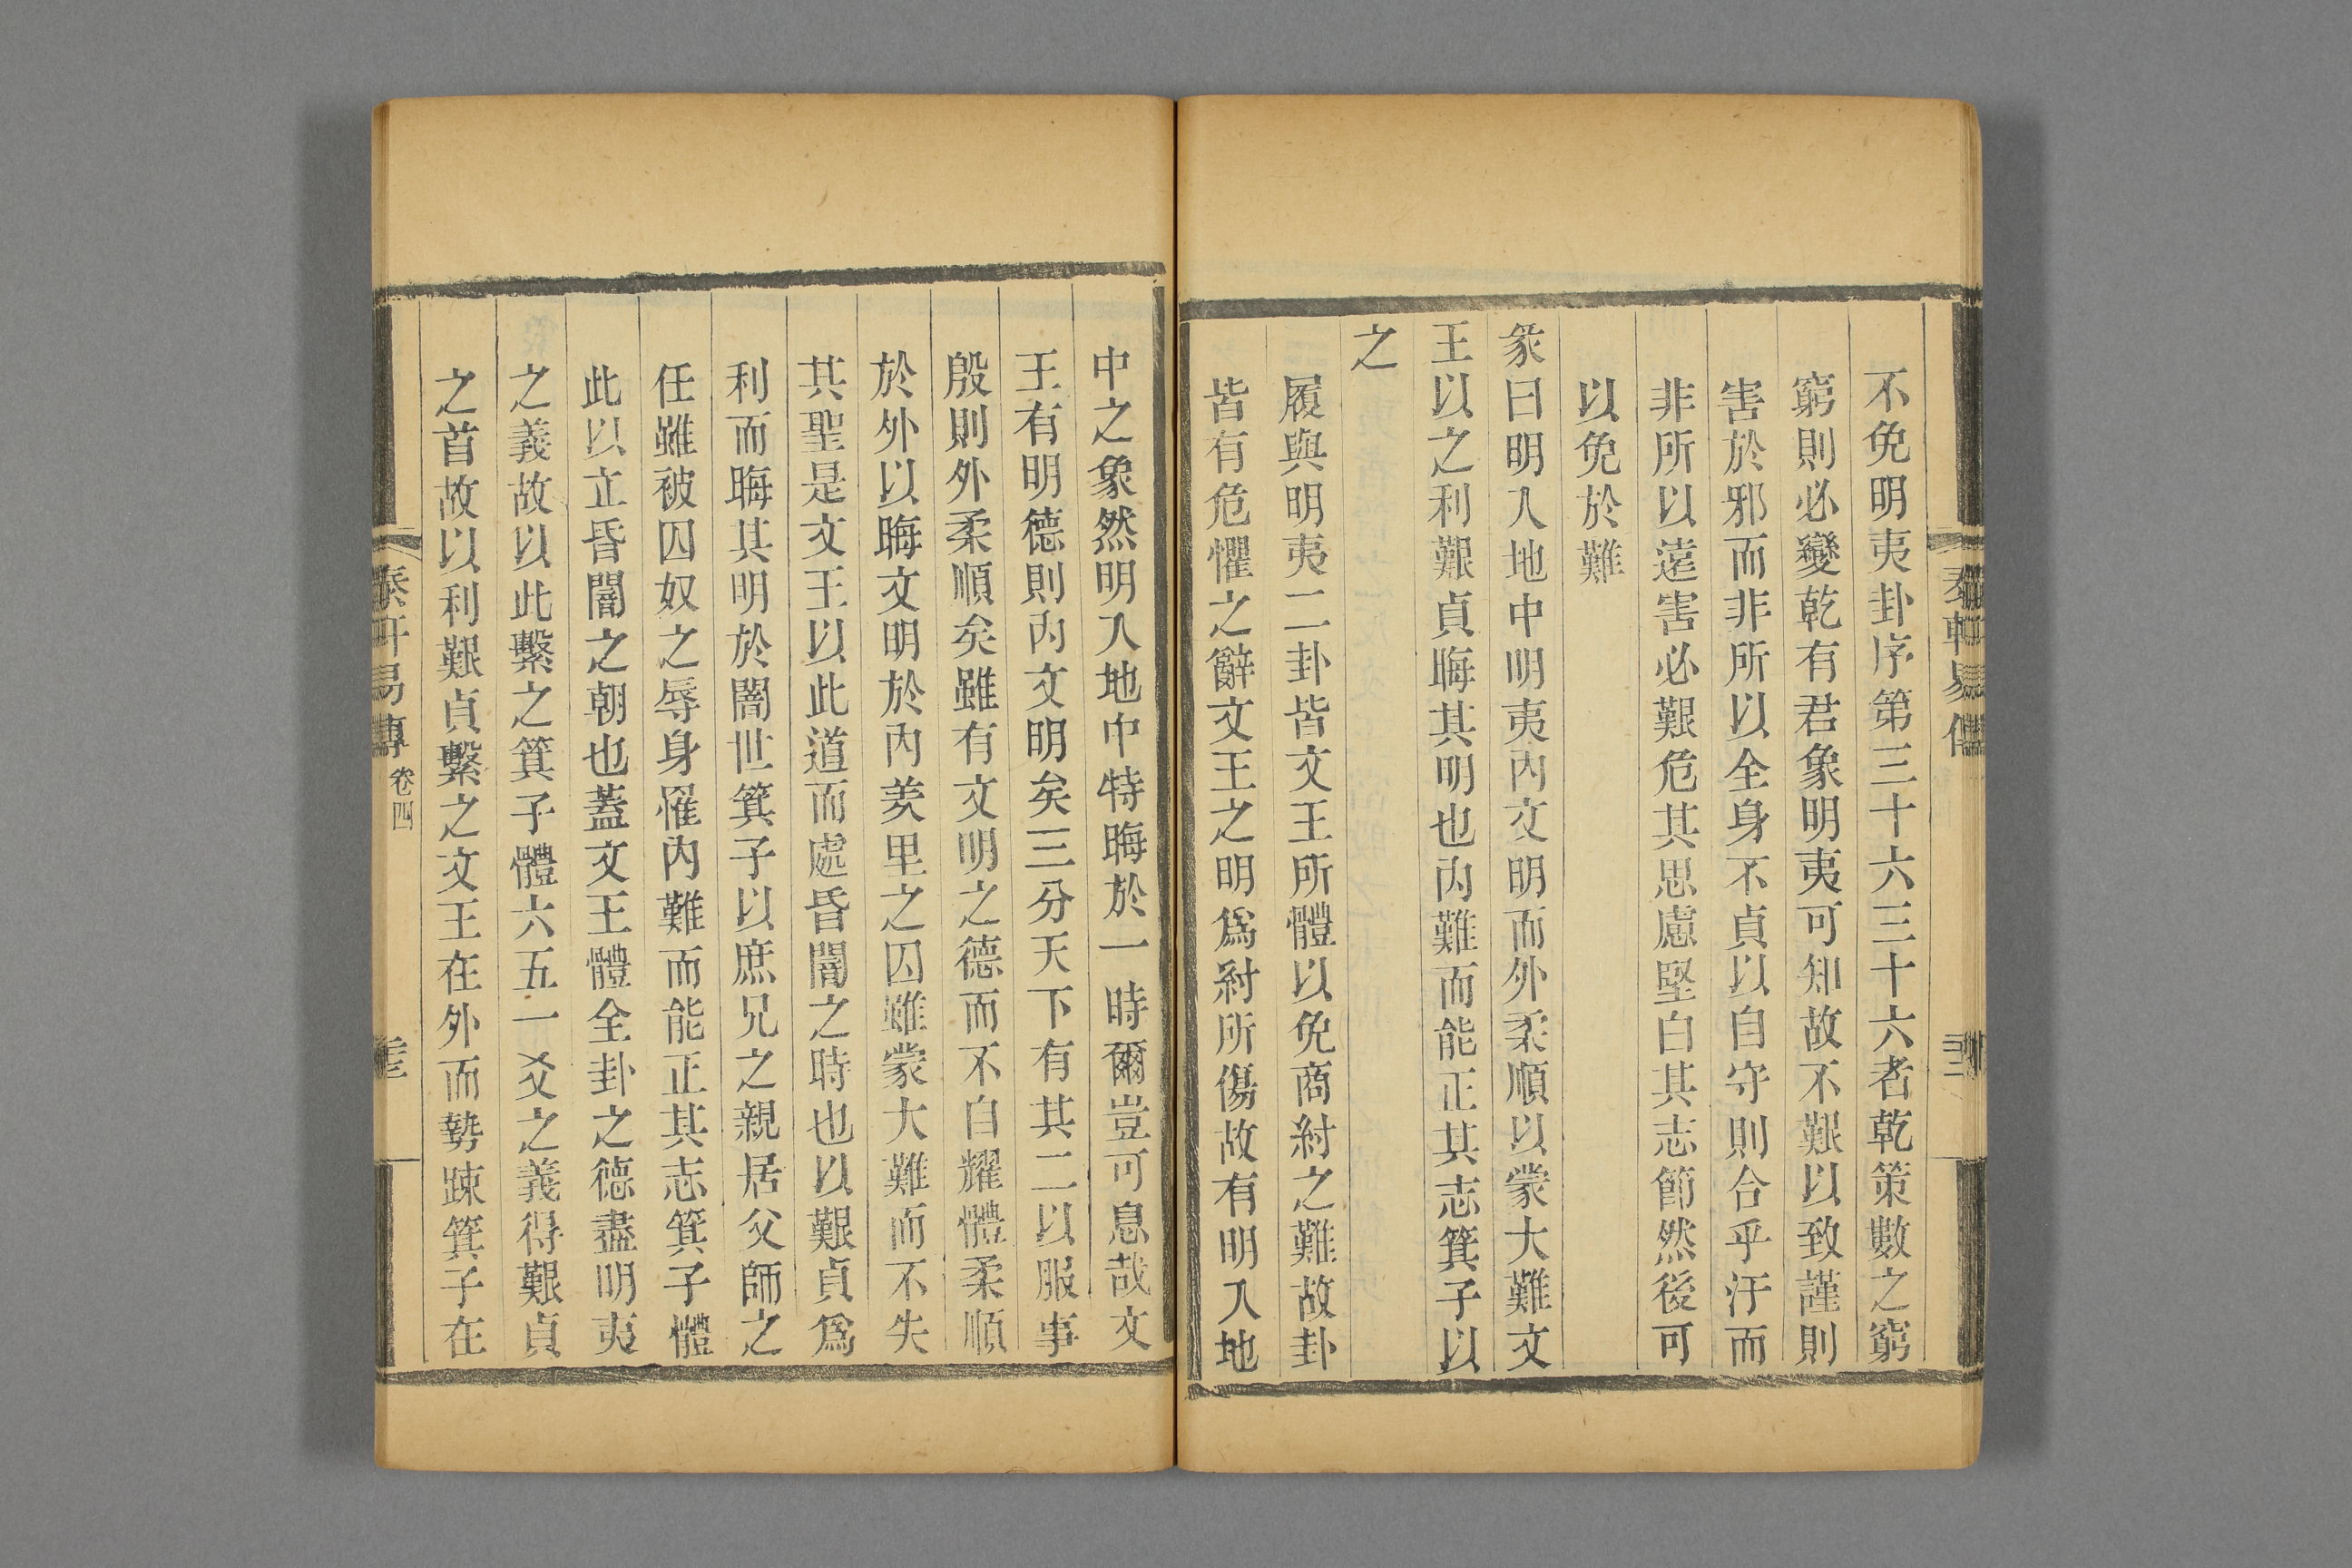 不免明夷卦序第三十六三十六者乾策數之窮
窮則必變乾有君象明夷可知故不艱以致謹則
害於邪而非所以全身不貞以自守則合乎汙而
非所以遠害必艱危其思慮堅白其志節然後可
以免於難
彖曰明入地中明夷內文明而外柔順以蒙大難文
王以之利艱貞晦其明也內難而能正其志箕子以
之
履與明夷二卦皆文王所體以免商紂之難故卦
皆有危懼之辭文王之明爲紂所傷故有明入地
中之象然明入地中特晦於一時爾豈可息哉文
王有明德則內文明矣三分天下有其二以服事
殷則外柔順矣雖有文明之德而不自耀體柔順
於外以晦文明於內羑里之囚雖蒙大難而不失
其聖是文王以此道而處昏闇之時也以艱貞爲
利而晦其明於闇世箕子以庶兄之親居父師之
任雖被囚奴之辱身罹內難而能正其志箕子體
此以立昏闇之朝也蓋文王體全卦之德盡明夷
之義故以此繫之箕子體六五一爻之義得艱貞
之首故以利艱貞繫之文王在外而勢踈箕子在
易傳 卷四